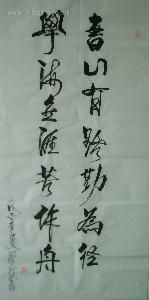 書山有路勤為径
學海無涯苦作舟